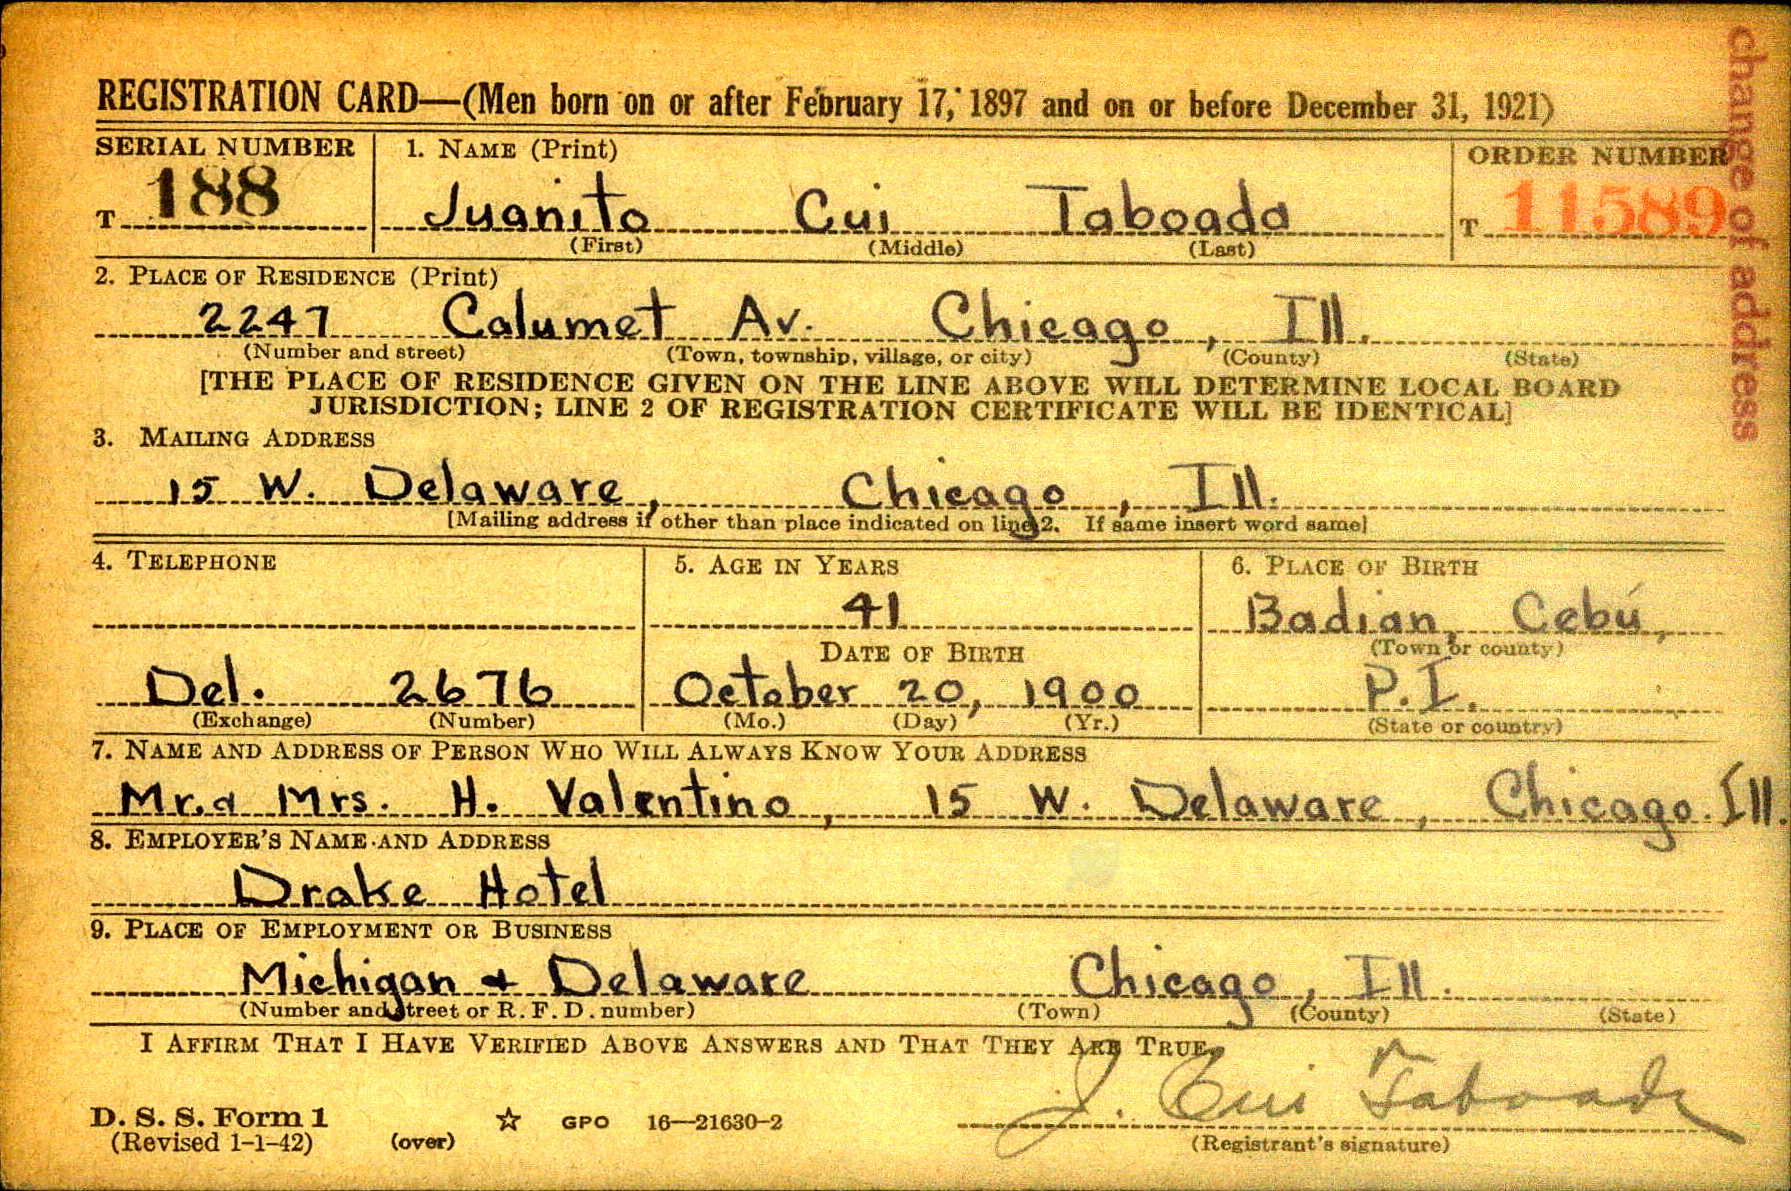 REGISTRATION CARD—(Men born on or after February 17, 1897 and on or before December 31, 1921)
SERIAL NUMBER
T 188
1. NAME (Print)
Juanito Cui Taboada
(First) (Middle) (Last)
ORDER NUMBER
T 11589
change of address
2. PLACE OF RESIDENCE (Print)
2247 Calumet Av. Chicago, Ill.
(Number and street) (Town, township, village, or city) (County) (State)
[THE PLACE OF RESIDENCE GIVEN ON THE LINE ABOVE WILL DETERMINE LOCAL BOARD
JURISDICTION; LINE 2 OF REGISTRATION CERTIFICATE WILL BE IDENTICAL]
3. MAILING ADDRESS
15 W. Delaware, Chicago, Ill.
[Mailing address if other than place indicated on line 2. If same insert word same]
4. TELEPHONE
Del. 2676
(Exchange) (Number)
5. AGE IN YEARS
41
DATE OF BIRTH
October 20, 1900
(Mo.) (Day) (Yr.)
6. PLACE OF BIRTH
Badian, Cebú,
(Town or county)
P.I.
(State or country)
7. NAME AND ADDRESS OF PERSON WHO WILL ALWAYS KNOW YOUR ADDRESS
Mr. & Mrs. H. Valentino, 15 W. Delaware, Chicago. Ill.
8. EMPLOYER'S NAME AND ADDRESS
Drake Hotel
9. PLACE OF EMPLOYMENT OR BUSINESS
Michigan & Delaware Chicago, Ill.
(Number and street or R. F. D. number) (Town) (County) (State)
I AFFIRM THAT I HAVE VERIFIED ABOVE ANSWERS AND THAT THEY ARE TRUE.
J. Cui Taboada
(Registrant's signature)
D. S. S. Form 1
(Revised 1-1-42) (over) ☆ GPO 16—21630-2